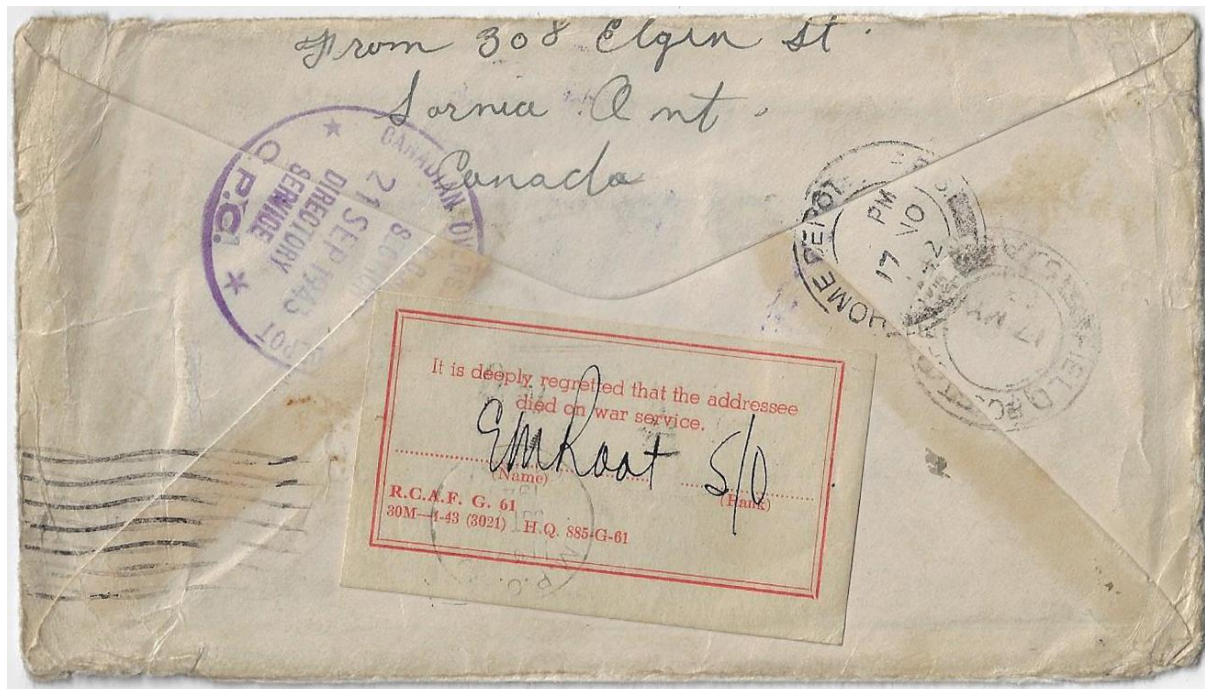 From 308 Elgin St.
Sarnia Ont.
Canada
CANADIAN OVERSEAS
DEPOT
21 SEP 1943
DIRECTORY
SERVICE
C.P.C.
HOME DEPOT
PM
17 NO
42
17
FIELD
It is deeply regretted that the addressee
died on war service.
EM Root S/O
(Name) (Rank)
R.C.A.F. G. 61
30M—1-43 (3021) H.Q. 885-G-61
P.O.